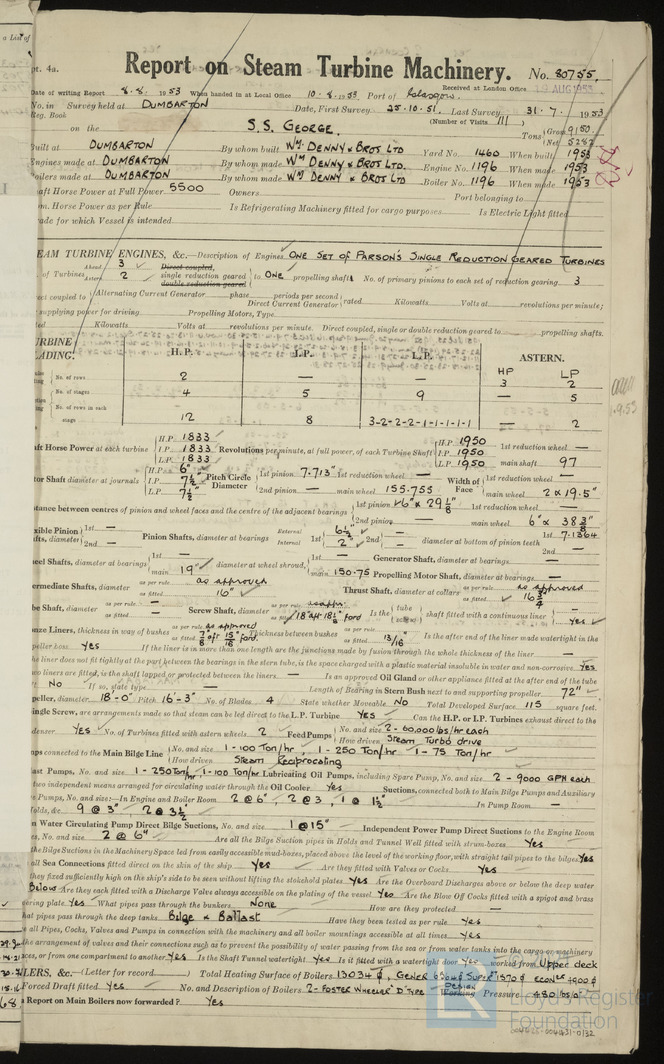 pt. 4a.
Report on Steam Turbine Machinery. No. 80755.
Date of writing Report 8.8. 1953 When handed in at Local Office 10.8.1953 Port of Glasgow. Received at London Office AUG 1953
No. in Survey held at DUMBARTON Date, First Survey 25.10.51. Last Survey 31.7.1953
Reg. Book (Number of Visits 111)
on the S.S. GEORGE. Tons Gross 9150 Net 5282
Built at DUMBARTON By whom built Wm DENNY & BROS LTD Yard No. 1460 When built 1953
Engines made at DUMBARTON By whom made Wm DENNY & BROS LTD. Engine No. 1196 When made 1953
Boilers made at DUMBARTON By whom made Wm DENNY & BROS LTD. Boiler No. 1196 When made 1953
Shaft Horse Power at Full Power 5500 Owners Port belonging to
Nom. Horse Power as per Rule Is Refrigerating Machinery fitted for cargo purposes Is Electric Light fitted
Trade for which Vessel is intended
STEAM TURBINE ENGINES, &c.—Description of Engines ONE SET OF PARSON'S SINGLE REDUCTION GEARED TURBINES
of Turbines Ahead 3 Astern 2 Direct coupled, single reduction geared double reduction geared to ONE propelling shaft. No. of primary pinions to each set of reduction gearing. 3
direct coupled to Alternating Current Generator phase periods per second Direct Current Generator rated Kilowatts Volts at revolutions per minute;
supplying power for driving Propelling Motors, Type
rated Kilowatts Volts at revolutions per minute. Direct coupled, single or double reduction geared to propelling shafts.
TURBINE BLADING. H.P. I.P. L.P. ASTERN.
HP LP
No. of rows 2 — — 3 2
No. of stages 4 5 9 — 5
No. of rows in each stage 12 8 3-2-2-2-1-1-1-1-1 — 2
Shaft Horse Power at each turbine H.P. 1833 I.P. 1833 L.P. 1833 Revolutions per minute, at full power, of each Turbine Shaft H.P. 1950 I.P. 1950 L.P. 1950 1st reduction wheel — main shaft 97
Rotor Shaft diameter at journals H.P. 6" I.P. 7½" L.P. 7½" Pitch Circle Diameter 1st pinion 7.713" 1st reduction wheel — 2nd pinion — main wheel 155.755 Width of Face 1st reduction wheel — main wheel 2 x 19.5"
Distance between centres of pinion and wheel faces and the centre of the adjacent bearings 1st pinion 6" x 29⅛ 1st reduction wheel — 2nd pinion — main wheel 6" x 38⅜
Flexible Pinion Shafts, diameter 1st — 2nd — Pinion Shafts, diameter at bearings External Internal 1st 6½" 2" 2nd — diameter at bottom of pinion teeth 1st 7.1364 2nd —
Wheel Shafts, diameter at bearings 1st — main 19" diameter at wheel shroud, 1st — main 150.75 Generator Shaft, diameter at bearings — Propelling Motor Shaft, diameter at bearings —
Intermediate Shafts, diameter as per rule as approved as fitted 16" Thrust Shaft, diameter at collars as per rule as approved as fitted 16¾
Tube Shaft, diameter as per rule — as fitted — Screw Shaft, diameter as per rule as appr. as fitted 18" aft 18½" ford Is the tube screw shaft fitted with a continuous liner — Yes
Bronze Liners, thickness in way of bushes as per rule as approved as fitted ⅞" aft 15/16" ford. Thickness between bushes as per rule as fitted 13/16" Is the after end of the liner made watertight in the
propeller boss Yes If the liner is in more than one length are the junctions made by fusion through the whole thickness of the liner —
If the liner does not fit tightly at the part between the bearings in the stern tube, is the space charged with a plastic material insoluble in water and non-corrosive. Yes
If two liners are fitted, is the shaft lapped or protected between the liners. — Is an approved Oil Gland or other appliance fitted at the after end of the tube
No If so, state type — Length of Bearing in Stern Bush next to and supporting propeller 72"
Propeller, diameter 18'-0" Pitch 16'-3" No. of Blades 4 State whether Moveable No Total Developed Surface 115 square feet.
If Single Screw, are arrangements made so that steam can be led direct to the L.P. Turbine Yes Can the H.P. or I.P. Turbines exhaust direct to the
Condenser Yes No. of Turbines fitted with astern wheels 2 Feed Pumps No. and size 2-60,000 lbs/hr each How driven Steam Turbo drive
Pumps connected to the Main Bilge Line No. and size 1-100 Ton/hr, 1-250 Ton/hr 1-75 Ton/hr How driven Steam Reciprocating
Ballast Pumps, No. and size 1-250 Ton/hr, 1-100 Ton/hr Lubricating Oil Pumps, including Spare Pump, No. and size 2-9000 GPH each
Are two independent means arranged for circulating water through the Oil Cooler Yes Suctions, connected both to Main Bilge Pumps and Auxiliary
Bilge Pumps, No. and size:—In Engine and Boiler Room 2 @ 6", 2 @ 3, 1 @ 1½" In Pump Room —
In Holds, &c. 9 @ 3", 2 @ 3½"
Main Water Circulating Pump Direct Bilge Suctions, No. and size 1 @ 15" Independent Power Pump Direct Suctions to the Engine Room
Bilges, No. and size 2 @ 6" Are all the Bilge Suction pipes in Holds and Tunnel Well fitted with strum-boxes Yes
Are the Bilge Suctions in the Machinery Space led from easily accessible mud-boxes, placed above the level of the working floor, with straight tail pipes to the bilges Yes
Are all Sea Connections fitted direct on the skin of the ship Yes Are they fitted with Valves or Cocks Yes
Are they fixed sufficiently high on the ship's side to be seen without lifting the stokehold plates Yes Are the Overboard Discharges above or below the deep water
Below Are they each fitted with a Discharge Valve always accessible on the plating of the vessel Yes Are the Blow Off Cocks fitted with a spigot and brass
covering plate Yes What pipes pass through the bunkers None How are they protected —
What pipes pass through the deep tanks Bilge & Ballast Have they been tested as per rule Yes
Are all Pipes, Cocks, Valves and Pumps in connection with the machinery and all boiler mountings accessible at all times Yes
Is the arrangement of valves and their connections such as to prevent the possibility of water passing from the sea or from water tanks into the cargo or machinery
spaces, or from one compartment to another Yes Is the Shaft Tunnel watertight Yes Is it fitted with a watertight door Yes worked from Upper deck
BOILERS, &c.—(Letter for record) Total Heating Surface of Boilers 13034
Forced Draft fitted Yes No. and Description of Boilers 2-FOSTER WHEELER 'D' TYPE Design Working Pressure 480 lbs/□"
Is a Report on Main Boilers now forwarded? Yes
Lloyd's Register
Foundation